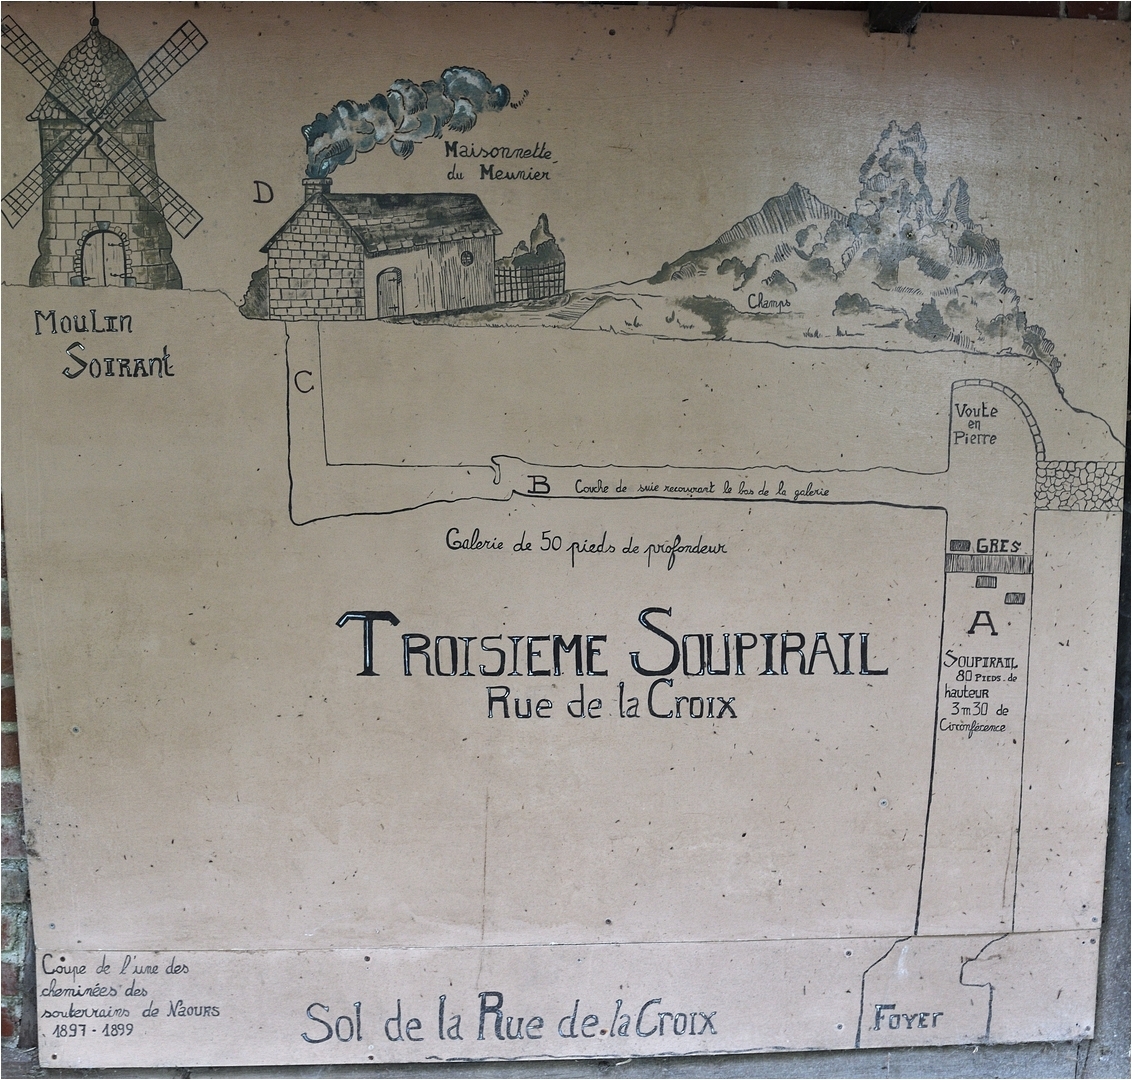 Maisonnette
du Meunier
D
Champs
Moulin
Soirant
C
Voute
en
Pierre
B Couche de suie recouvrant le bas de la galerie
Galerie de 50 pieds de profondeur
GRES
A
TROISIEME SOUPIRAIL
Rue de la Croix
SOUPIRAIL
80 PIEDS de
hauteur
3m30 de
Circonférence
Coupe de l'une des
cheminées des
souterrains de NAOURS
1897 - 1899
Sol de la Rue de la Croix
FOYER